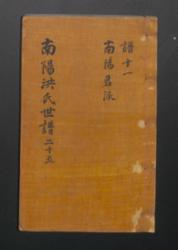 譜十一
南陽君派
南陽洪氏世譜二十五